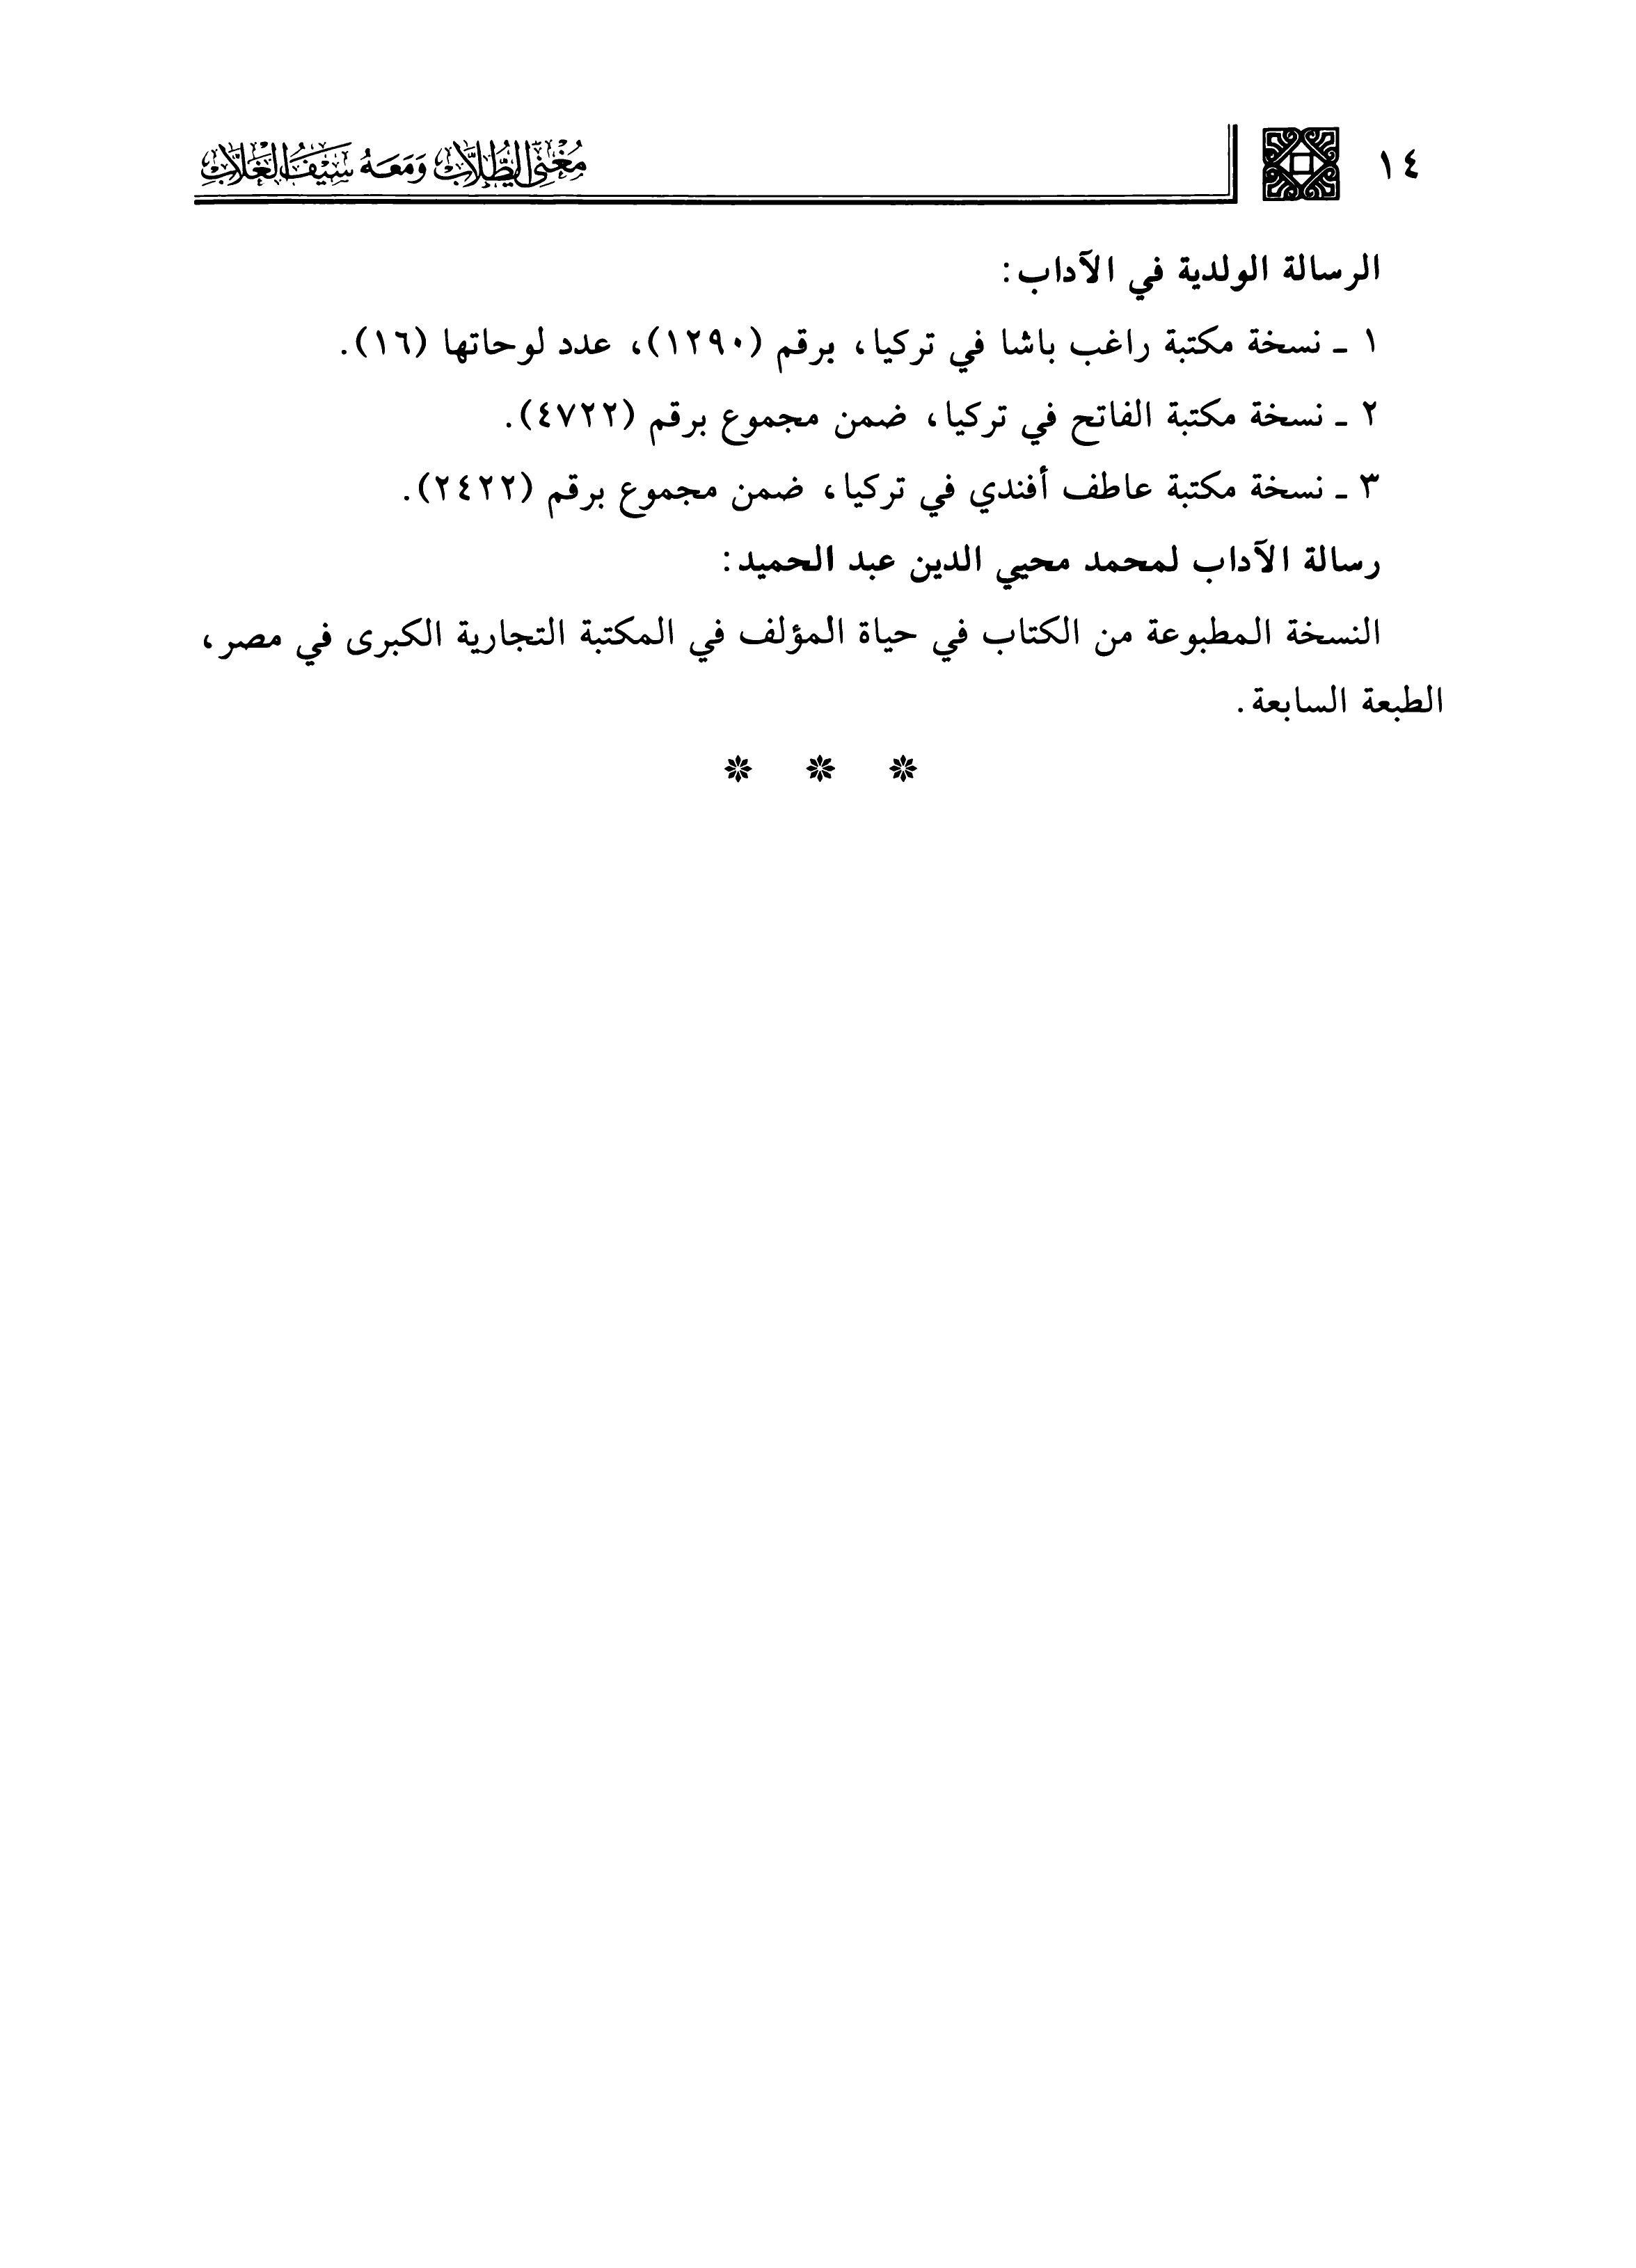 ١٤
مُغْنِي الطُّلَّابِ وَمَعَهُ سَيْفُ الغَلَّابِ
الرسالة الولدية في الآداب:
١ ـ نسخة مكتبة راغب باشا في تركيا، برقم (١٢٩٠)، عدد لوحاتها (١٦).
٢ ـ نسخة مكتبة الفاتح في تركيا، ضمن مجموع برقم (٤٧٢٢).
٣ ـ نسخة مكتبة عاطف أفندي في تركيا، ضمن مجموع برقم (٢٤٢٢).
رسالة الآداب لمحمد محيي الدين عبد الحميد:
النسخة المطبوعة من الكتاب في حياة المؤلف في المكتبة التجارية الكبرى في مصر،
الطبعة السابعة.